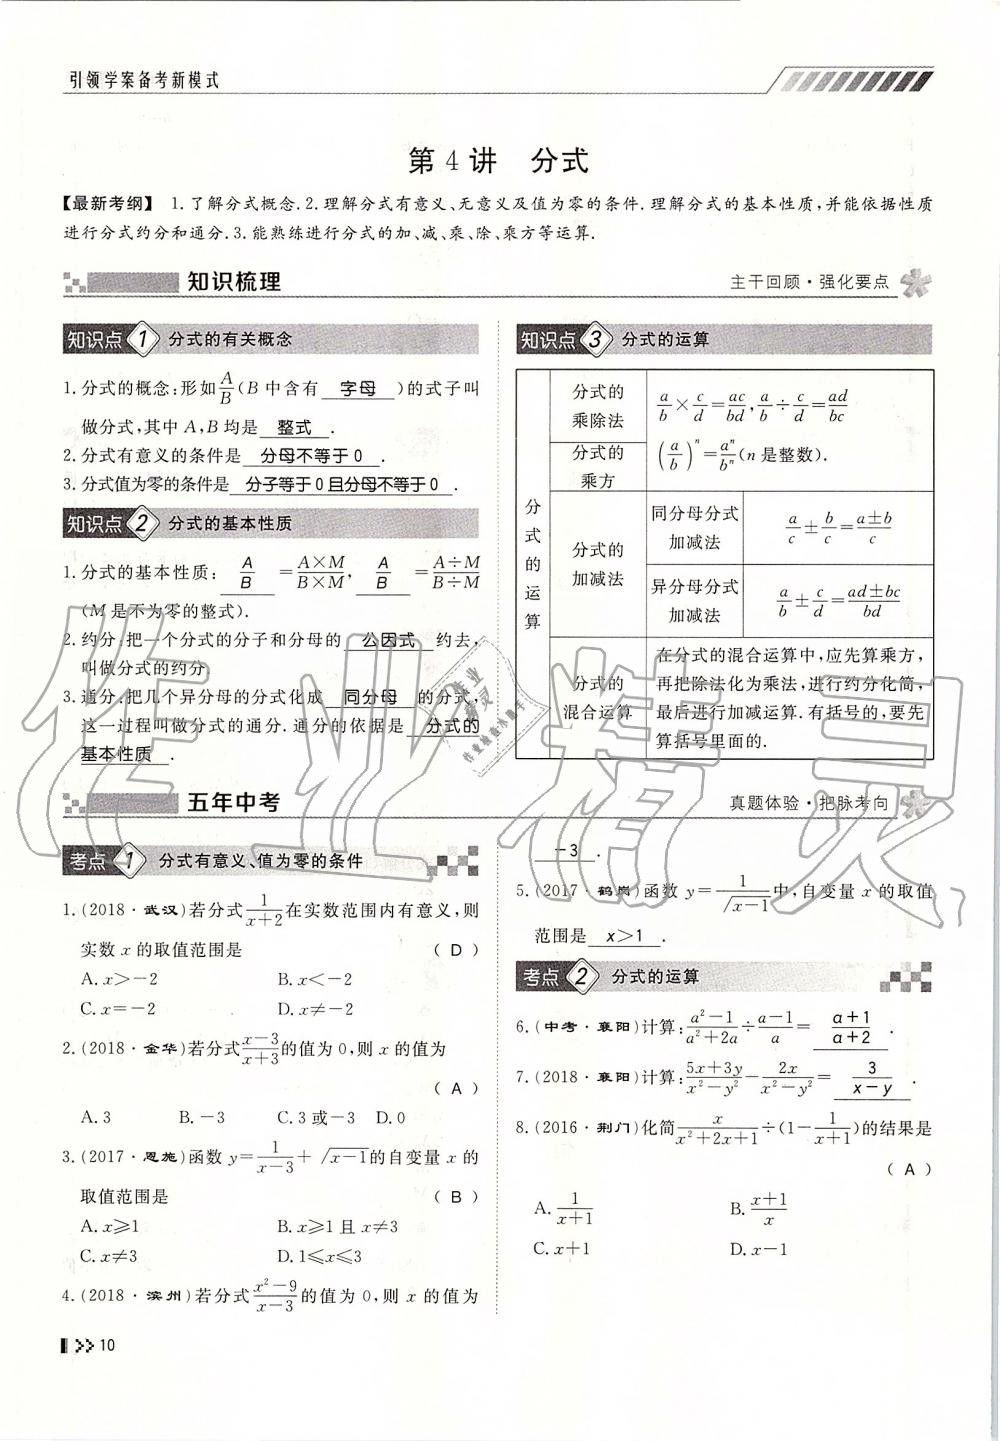 引领学案备考新模式
第4讲 分式
【最新考纲】 1.了解分式概念.2.理解分式有意义、无意义及值为零的条件.理解分式的基本性质,并能依据性质
进行分式约分和通分.3.能熟练进行分式的加、减、乘、除、乘方等运算.
知识梳理
主干回顾·强化要点
知识点 1 分式的有关概念
1.分式的概念:形如A/B(B中含有 字母 )的式子叫
做分式,其中A,B均是 整式 .
2.分式有意义的条件是 分母不等于0 .
3.分式值为零的条件是 分子等于0且分母不等于0 .
知识点 2 分式的基本性质
1.分式的基本性质: A/B =A×M/B×M, A/B =A÷M/B÷M
(M是不为零的整式).
2.约分:把一个分式的分子和分母的 公因式 约去,
叫做分式的约分.
3.通分:把几个异分母的分式化成 同分母 的分式,
这一过程叫做分式的通分.通分的依据是 分式的
基本性质 .
知识点 3 分式的运算
分式的运算
分式的
乘除法
a/b×c/d=ac/bd,a/b÷c/d=ad/bc
分式的
乘方
(a/b)^n=a^n/b^n(n是整数).
分式的
加减法
同分母分式
加减法
a/c±b/c=a±b/c
异分母分式
加减法
a/b±c/d=ad±bc/bd
分式的
混合运算
在分式的混合运算中,应先算乘方,
再把除法化为乘法,进行约分化简,
最后进行加减运算.有括号的,要先
算括号里面的.
五年中考
真题体验·把脉考向
考点 1 分式有意义、值为零的条件
1.(2018·武汉)若分式1/x+2在实数范围内有意义,则
实数x的取值范围是 ( D )
A.x>-2 B.x<-2
C.x=-2 D.x≠-2
2.(2018·金华)若分式x-3/x+3的值为0,则x的值为
( A )
A.3 B.-3 C.3或-3 D.0
3.(2017·恩施)函数y=1/x-3+√x-1的自变量x的
取值范围是 ( B )
A.x≥1 B.x≥1且x≠3
C.x≠3 D.1≤x≤3
4.(2018·滨州)若分式x²-9/x-3的值为0,则x的值为
-3 .
5.(2017·鹤岗)函数y=1/√x-1中,自变量x的取值
范围是 x>1 .
考点 2 分式的运算
6.(中考·襄阳)计算:a²-1/a²+2a÷a-1/a= a+1/a+2 .
7.(2018·襄阳)计算:5x+3y/x²-y²-2x/x²-y²= 3/x-y .
8.(2016·荆门)化简x/x²+2x+1÷(1-1/x+1)的结果是
( A )
A.1/x+1 B.x+1/x
C.x+1 D.x-1
10
作业精灵